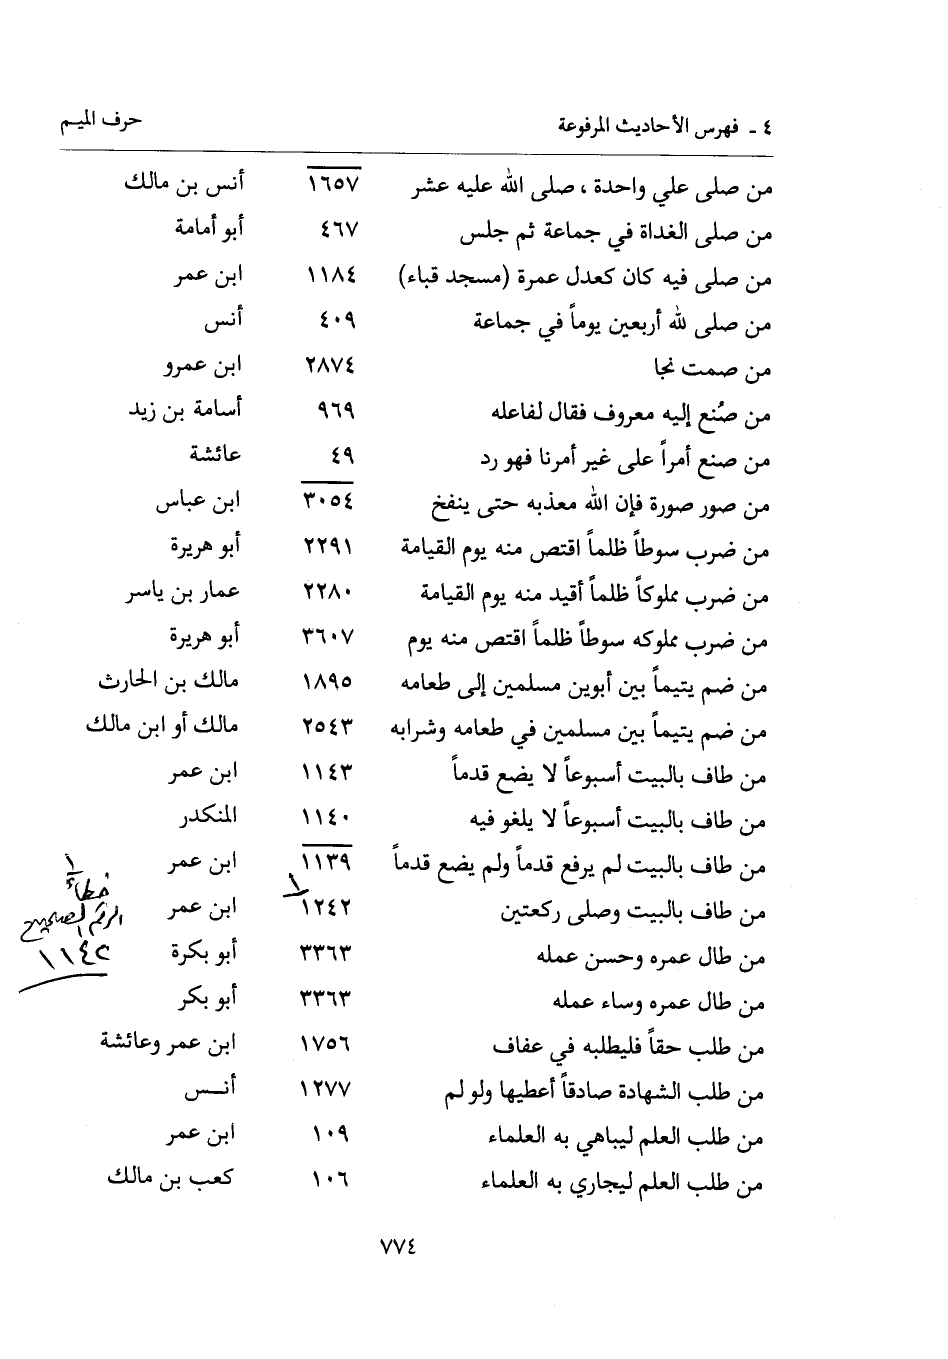 ٤ ـ فهرس الأحاديث المرفوعة حرف الميم
من صلى علي واحدة ، صلى الله عليه عشر ١٦٥٧ أنس بن مالك
من صلى الغداة في جماعة ثم جلس ٤٦٧ أبو أمامة
من صلى فيه كان كعدل عمرة (مسجد قباء) ١١٨٤ ابن عمر
من صلى لله أربعين يوماً في جماعة ٤٠٩ أنس
من صمت نجا ٢٨٧٤ ابن عمرو
من صُنع إليه معروف فقال لفاعله ٩٦٩ أسامة بن زيد
من صنع أمراً على غير أمرنا فهو رد ٤٩ عائشة
من صور صورة فإن الله معذبه حتى ينفخ ٣٠٥٤ ابن عباس
من ضرب سوطاً ظلماً اقتص منه يوم القيامة ٢٢٩١ أبو هريرة
من ضرب مملوكاً ظلماً أقيد منه يوم القيامة ٢٢٨٠ عمار بن ياسر
من ضرب مملوكه سوطاً ظلماً اقتص منه يوم ٣٦٠٧ أبو هريرة
من ضم يتيماً بين أبوين مسلمين إلى طعامه ١٨٩٥ مالك بن الحارث
من ضم يتيماً بين مسلمين في طعامه وشرابه ٢٥٤٣ مالك أو ابن مالك
من طاف بالبيت أسبوعاً لا يضع قدماً ١١٤٣ ابن عمر
من طاف بالبيت أسبوعاً لا يلغو فيه ١١٤٠ المنكدر
من طاف بالبيت لم يرفع قدماً ولم يضع قدماً ١١٣٩ ابن عمر
١
١
خطأ
من طاف بالبيت وصلى ركعتين ١٢٤٢ ابن عمر
الرقم الصحيح
١١٤٢
من طال عمره وحسن عمله ٣٣٦٣ أبو بكرة
من طال عمره وساء عمله ٣٣٦٣ أبو بكر
من طلب حقاً فليطلبه في عفاف ١٧٥٦ ابن عمر وعائشة
من طلب الشهادة صادقاً أعطيها ولو لم ١٢٧٧ أنس
من طلب العلم ليباهي به العلماء ١٠٩ ابن عمر
من طلب العلم ليجاري به العلماء ١٠٦ كعب بن مالك
٧٧٤